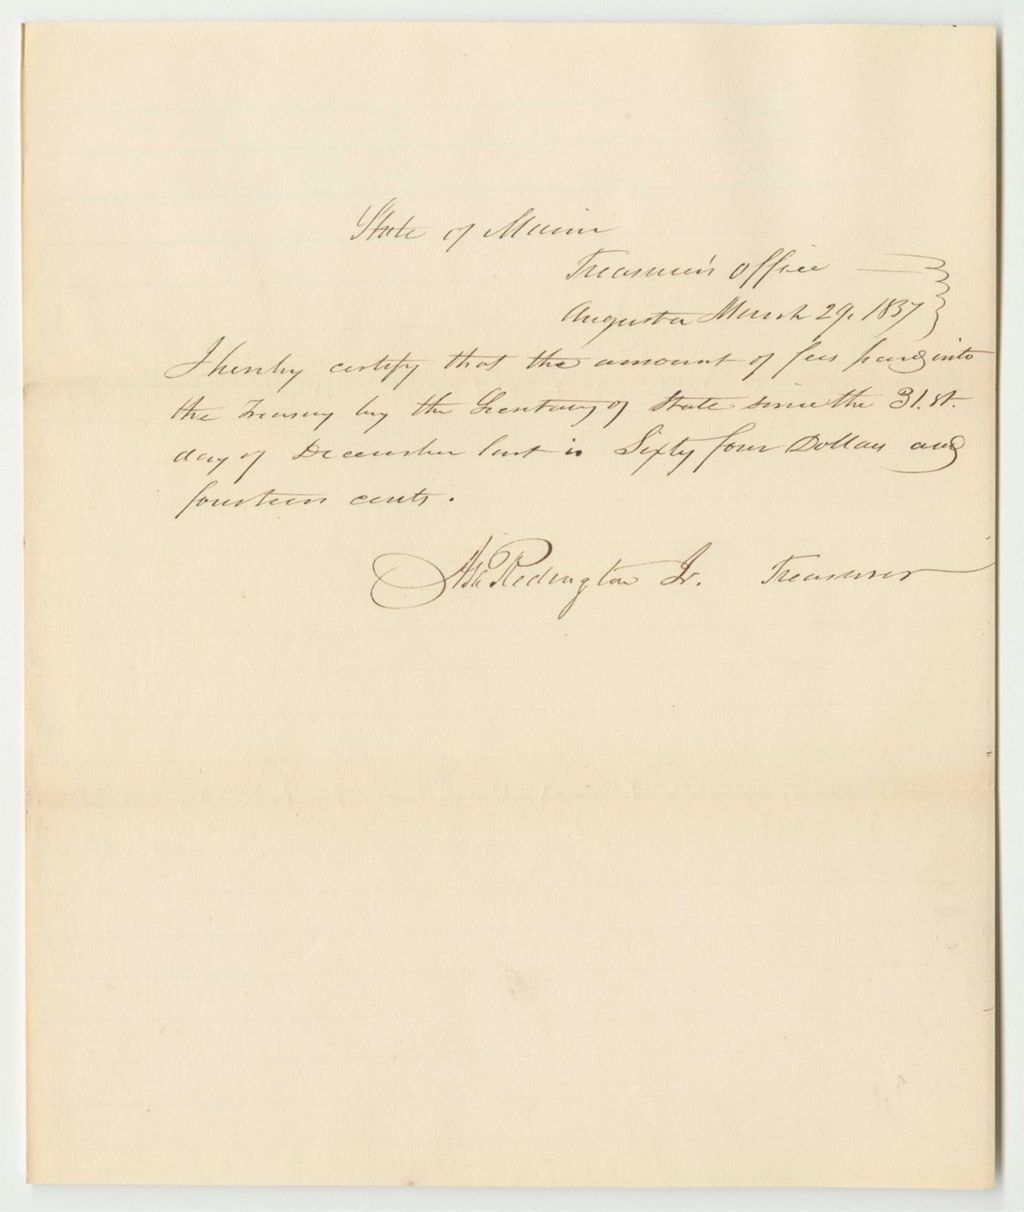 State of Maine
Treasurer's Office
Augusta March 29, 1837
I hereby certify that the amount of fees paid into
the Treasury by the Secretary of State since the 31.st.
day of December last is Sixty four Dollars and
fourteen cents.
Asa Redington Jr. Treasurer